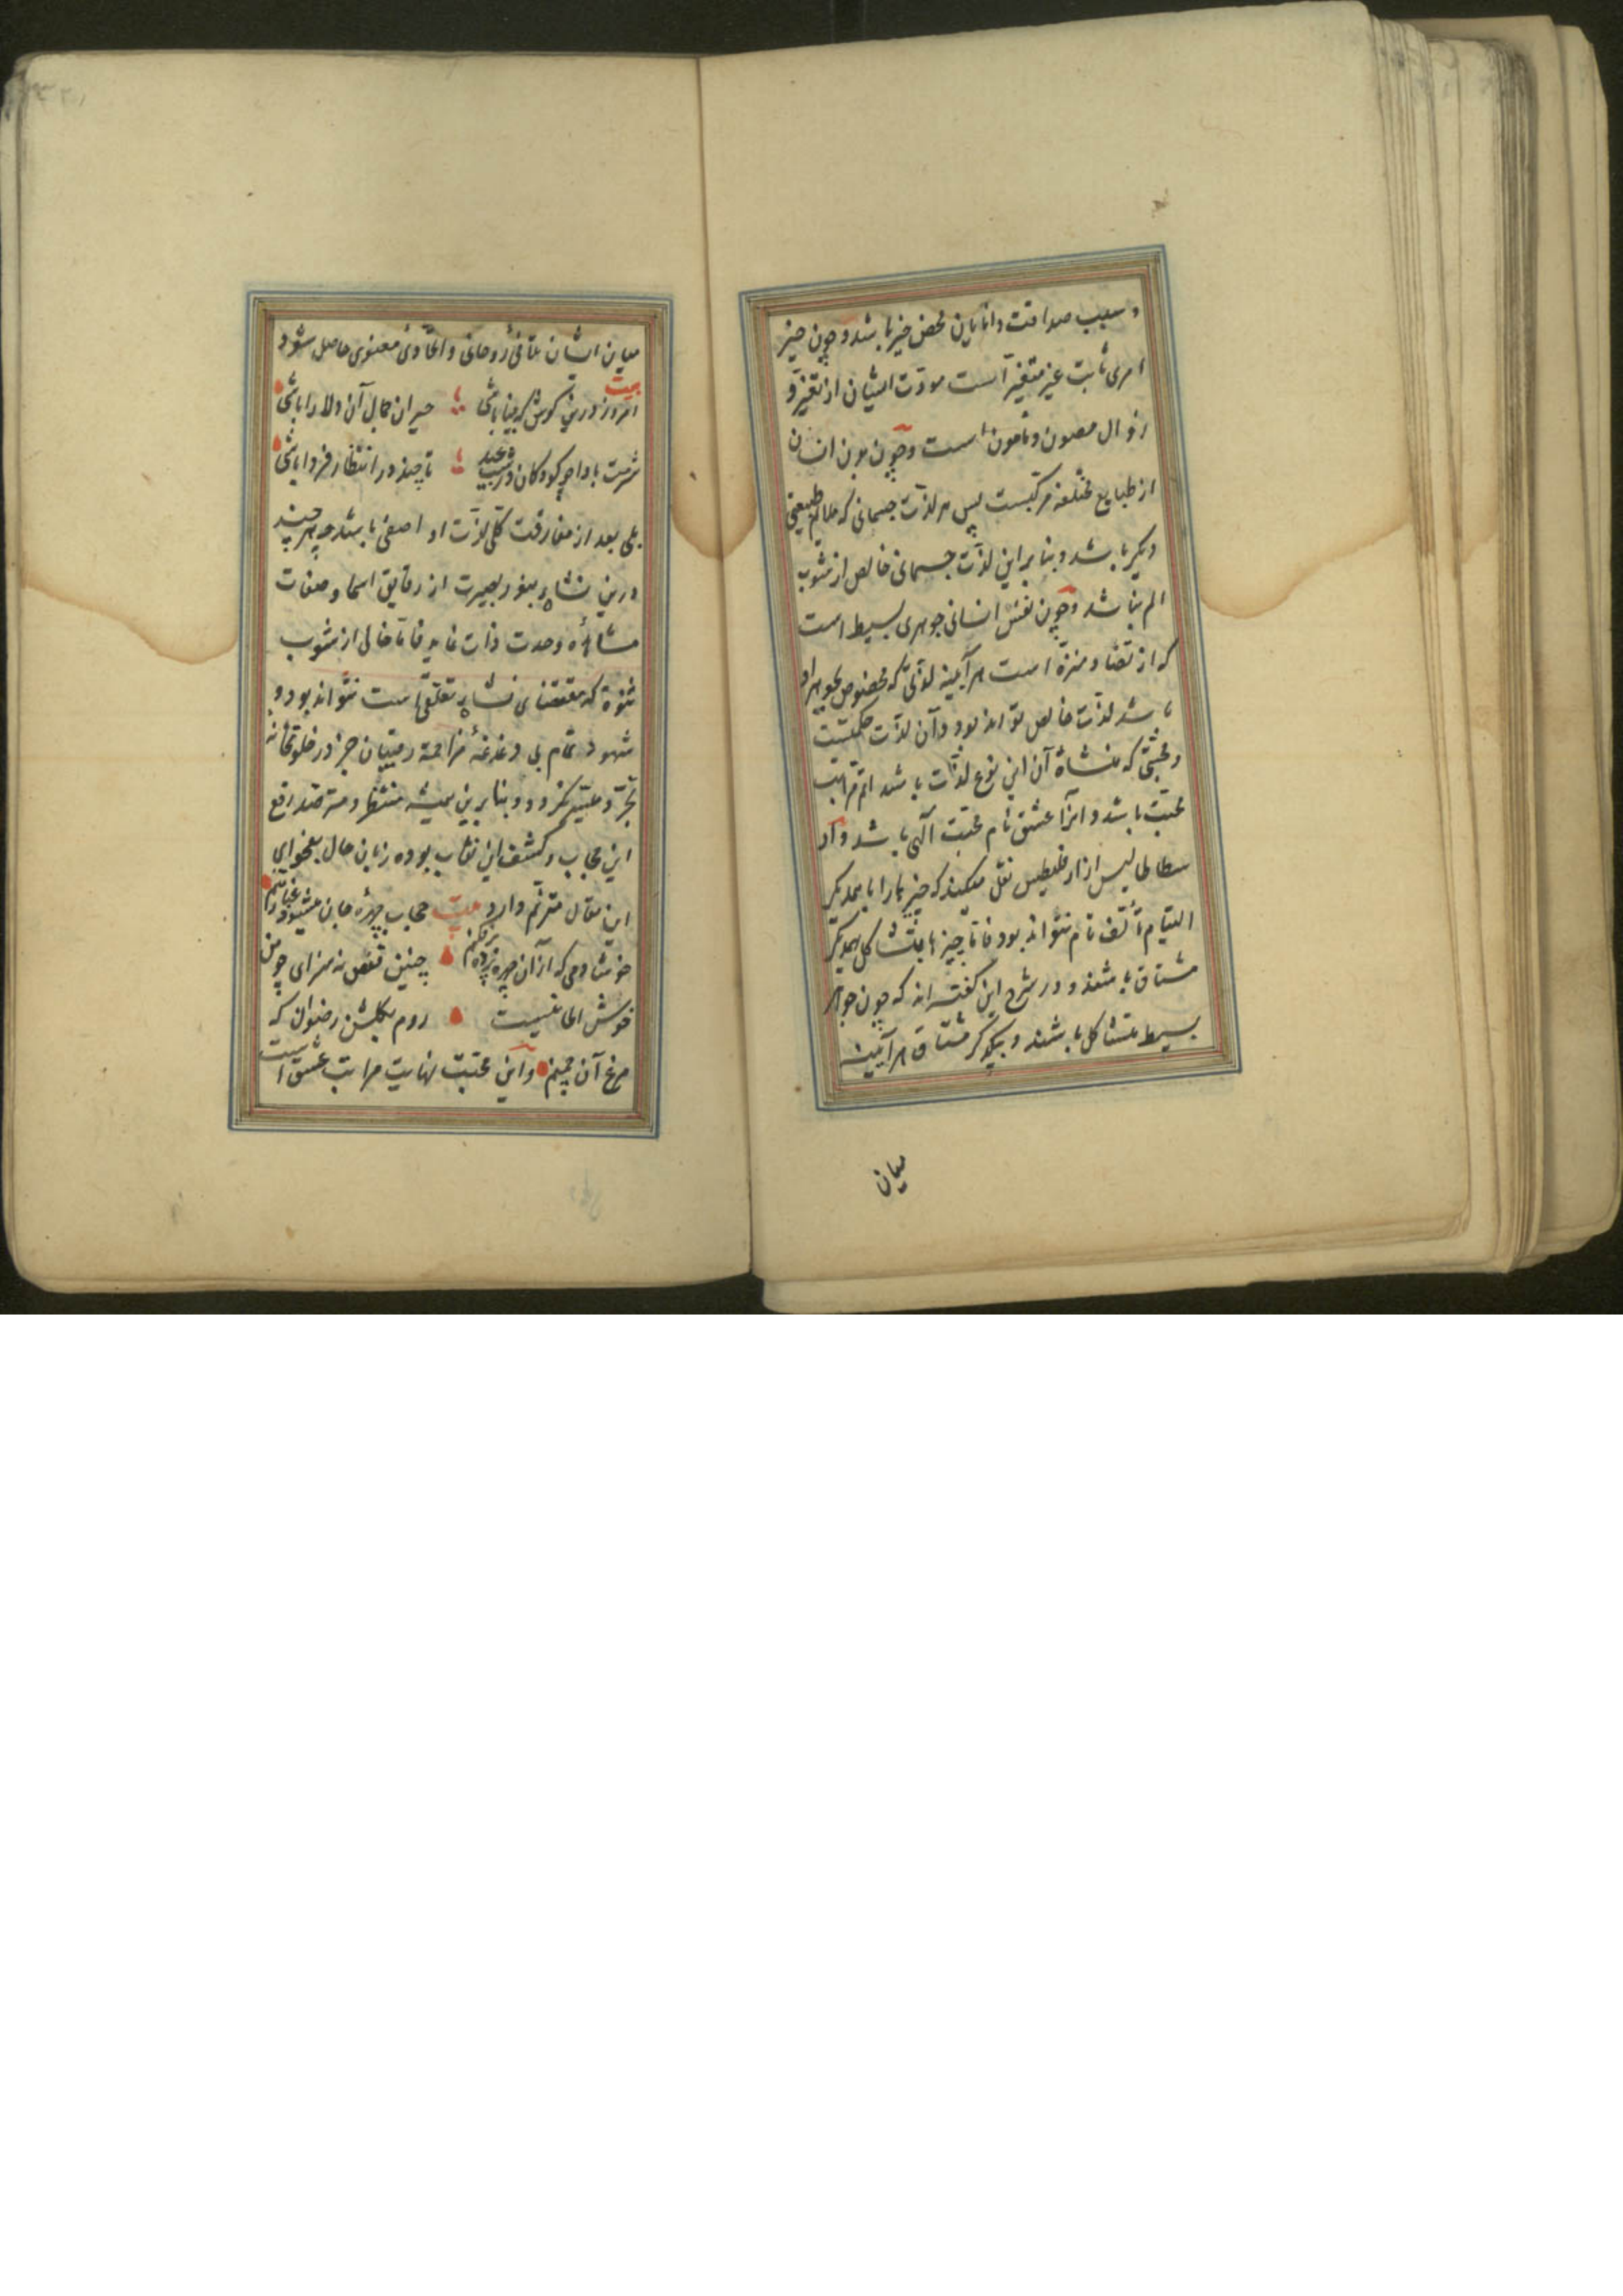 و سبب صداقت دانایان محض خیر باشد و چون خیر
امری ثابت غیر متغیر است مودّت ایشان از تغیّر و
زوال مصون و مامون است و چون بدن انسان
از طبایع مختلفه مرکبست پس هر لذّت جسمانی که ملایم طبیعتی
دیگر باشد و بنا بر این لذّت جسمانی خالص از شوب
الم نباشد و چون نفس انسانی جوهری بسیط است
که از تضاد منزّه است هر آیینه لذّتی که مخصوص بجوهر او
باشد لذّت خالص تواند بود و آن لذّت حکمتست
و محبّتی که منشاء آن این نوع لذّات باشد اتمّ مراتب
محبّت باشد و آنرا عشق تام و محبّت آلهی باشد و از
سطاطالیس از ارقلیطس نقل میکند که چیزها را با همدیگر
التیام و تألّف تام نتواند بود فاما چیزها متشاکل بهمدیگر
مشتاق باشند و در شرح این گفته اند که چون جواهر
بسیط متشاکل باشند و بیکدیگر مشتاق هر آیینه
میان
میان ایشان تلاقی روحانی و اتحادی معنوی حاصل شود
بیت
امروز درین کوش که بینا باشی حیران جمال آن دلارا باشی
شرمت بادا چو کودکان در شب عید تا چند در انتظار فردا باشی
بلی بعد از مفارقت کلّی لذّت او اصفی باشد و هر چند
درین نشاه بنور بصیرت از دقایق اسما و صفات
مشاهده وحدت ذات نماید فاما خالی از شوب
شوه که مقتضای نشاه تعلّق است نتواند بود و
شهود تمام بی دغدغهٔ مزاحمهٔ رقیبان جز در خلوتخانه
تجرّد میسّر نکردد و بنا برین همیشه منتظر و مترصّد رفع
این حجاب و کشف این نقاب بوده زبان حال بفحوای
این مقال مترنّم دارد بیت حجاب چهرهٔ جان میشود غبار تنم
خوشا دمی که از آن چهره پرده برفکنم چنین قفس نه سزای چو من
خوش الحانیست روم بکلشن رضوان که
مرغ آن چمنم و این محبّت نهایت مراتب عشق است